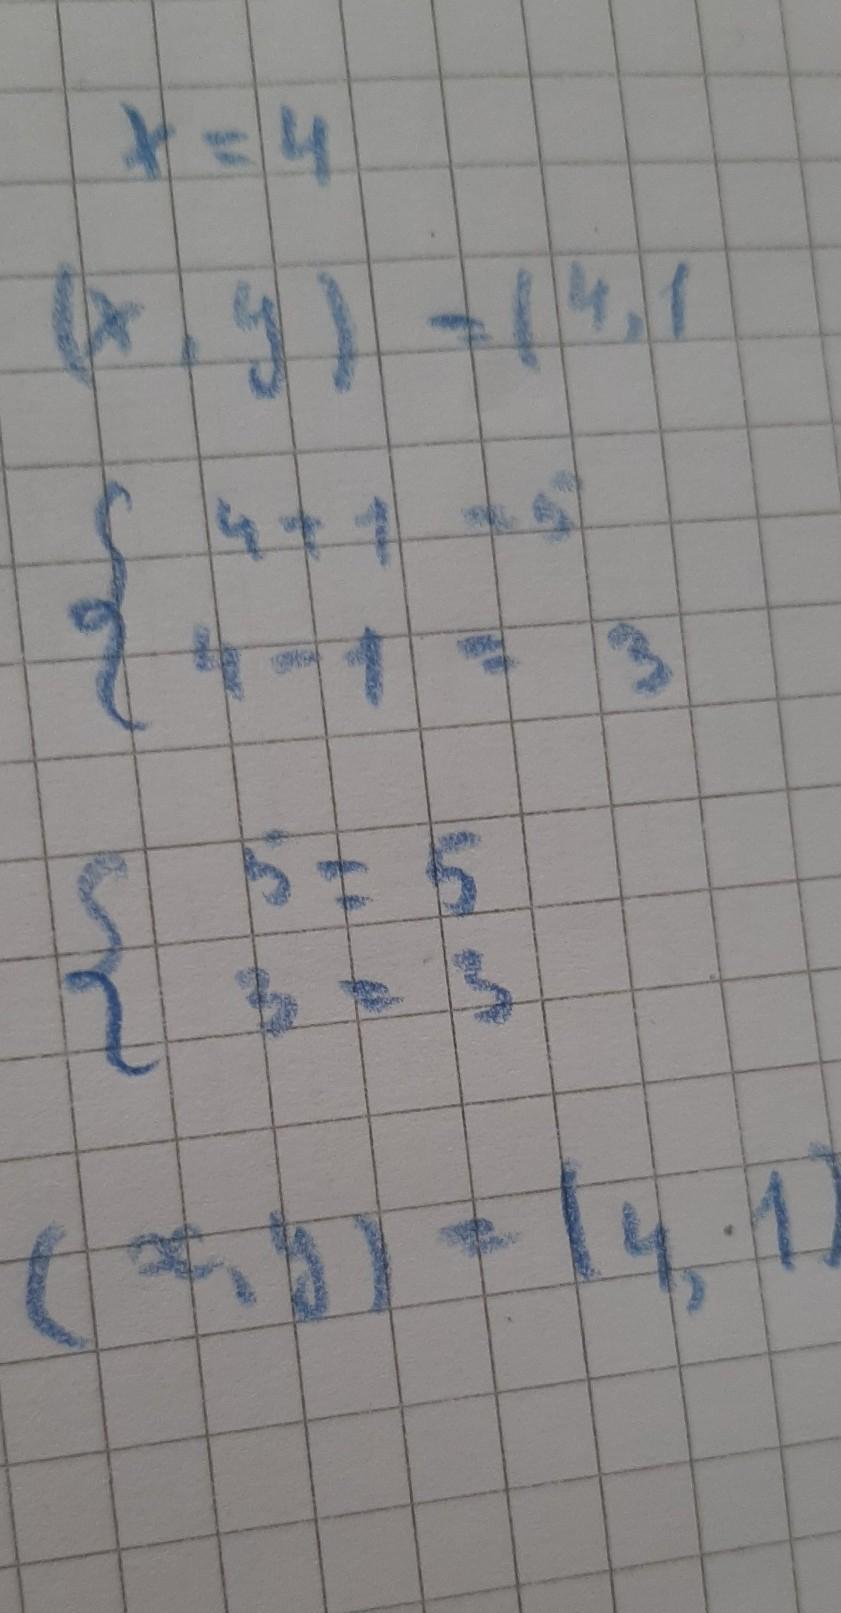 x = 4
(x, y) = (4, 1
{ 4 + 1 = 5
4 - 1 = 3
{ 5 = 5
3 = 3
(x, y) = (4, 1)